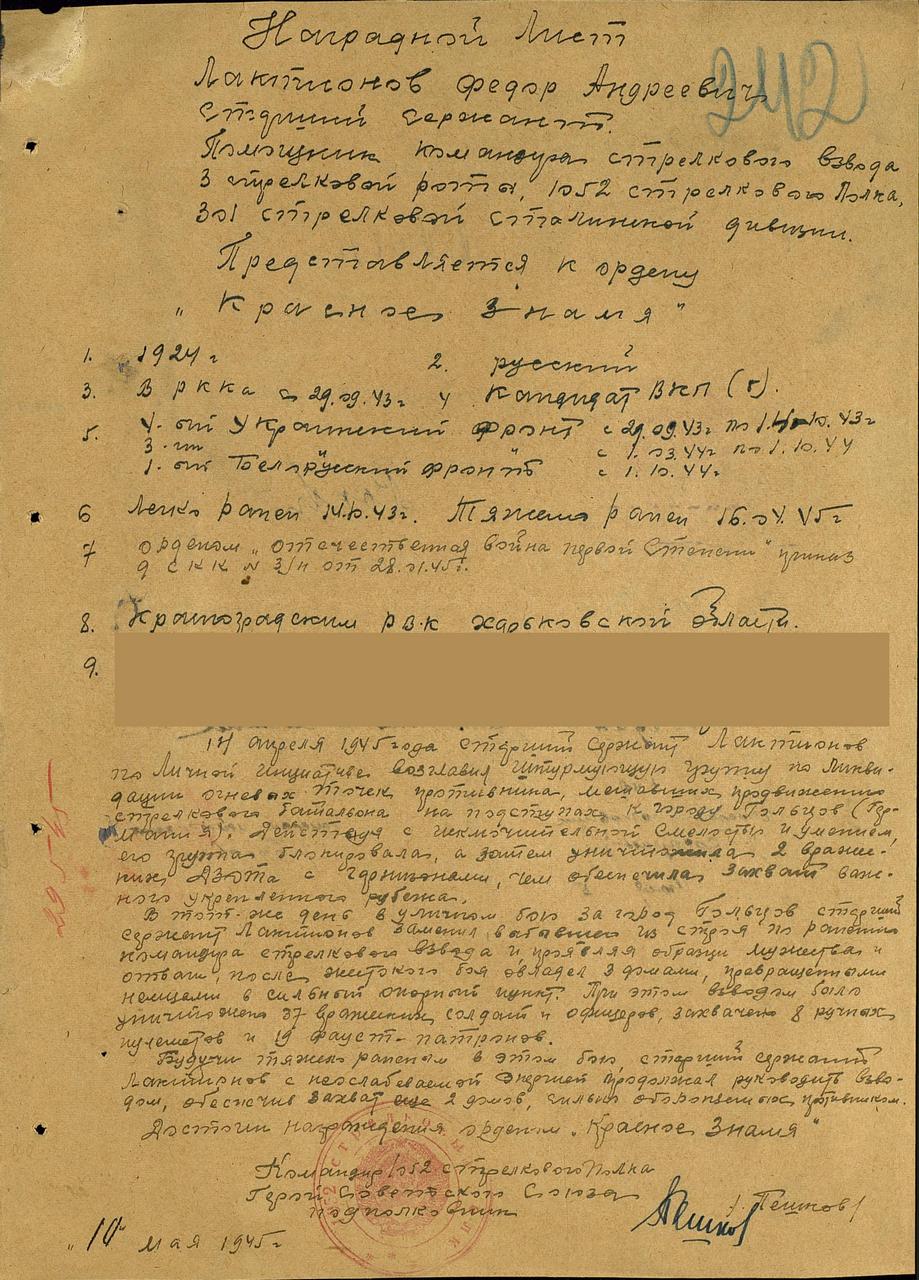 Наградной Лист
242
Лактионов Федор Андреевич
Старший сержант.
Помощник командира стрелкового взвода
3 стрелковой роты, 1052 стрелкового Полка,
301 стрелковой Сталинской дивизии.
Представляется к ордену
"Красное Знамя"
1. 1924 г 2. русский
3. В РККА с 29.09.43 г 4 Кандидат ВКП(б).
5. 4-ый Украинский фронт с 29.09.43г по 10.43г
3-ий с 1.03.44г по 1.10.44
1-ый Белорусский фронт с 1.10.44г
6 Легко ранен 14.10.43г. Тяжело ранен 16.04.45г
7 орденом "отечественная война первой степени" приказ
9 СКК № 3/н от 28.01.45г.
8. Красноградским рвк харьковской области.
9.
17 апреля 1945 года старший сержант Лактионов
по личной инициативе возглавил штурмующую группу по ликви-
дации огневых точек противника, мешавших продвижению
стрелкового батальона на подступах к городу Гользов (Гер-
мания). Действуя с исключительной смелостью и умением,
его группа блокировала, а затем уничтожила 2 враже-
ких ДЗОТа с гарнизонами, чем обеспечила захват важ-
ного укрепленного рубежа.
В тот-же день в уличном бою за город Гользов старший
сержант Лактионов заменил выбывшего из строя по ранению
командира стрелкового взвода и, проявляя образцы мужества и
отваги, после жесткого боя овладел 3 домами, превращенными
немцами в сильный опорный пункт. При этом взводом было
уничтожено 37 вражеских солдат и офицеров, захвачено 8 ручных
пулеметов и 19 фауст-патронов.
Будучи тяжело раненым в этом бою старший сержант
Лактионов с неослабеваемой энергией продолжал руководить взво-
дом, обеспечив захват еще 2 домов, сильно обороняемых противником.
Достоин награждения орденом "Красное Знамя"
Командир 1052 стрелкового Полка
Герой Советского Союза
подполковник
Пешков / Пешков /
"10" мая 1945г